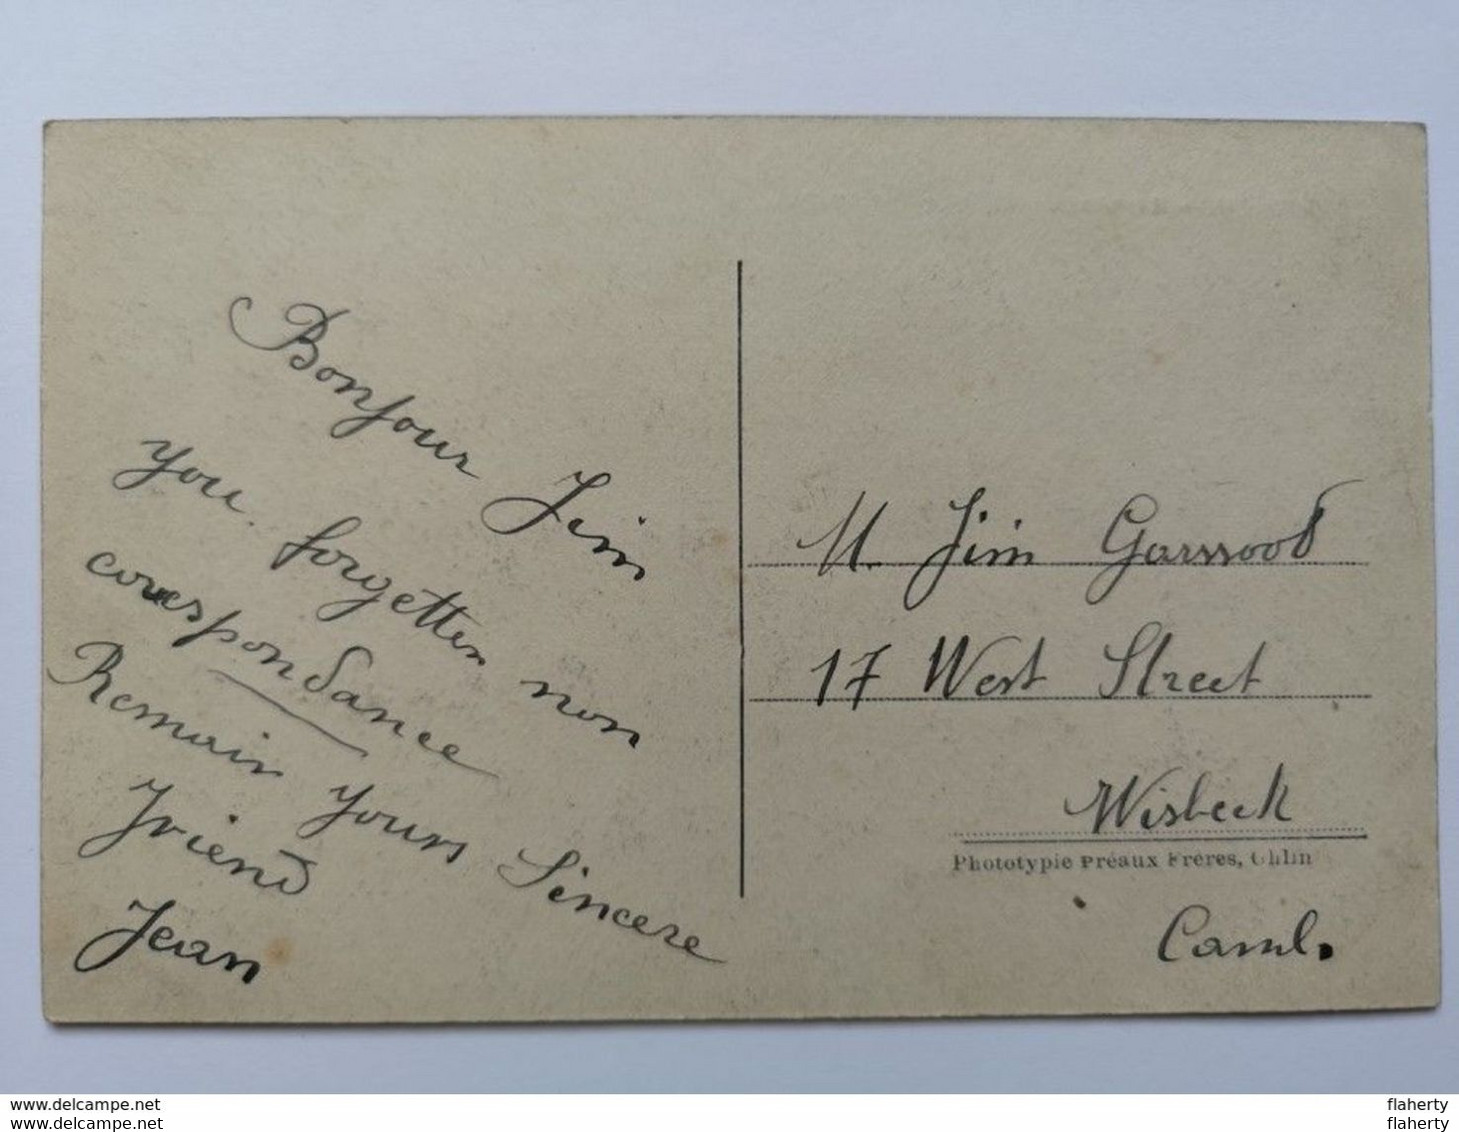 Bonjour Jim
you forgetten non
correspondance
Remain yours Sincere
Friend
Jean
M. Jim Garwood
17 West Street
Wisbeck
Phototypie Préaux Frères, Ghlin
Camb.
www.delcampe.net
flaherty
www.delcampe.net
flaherty